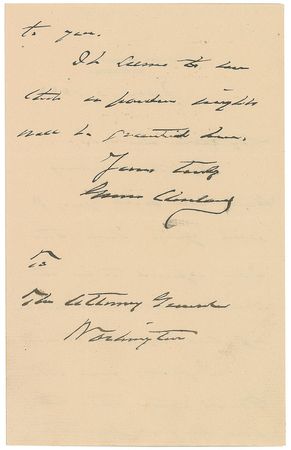 to you.
It seems to me
that a pardon might
well be granted him.
Yours truly
Grover Cleveland
To
The Attorney General
Washington